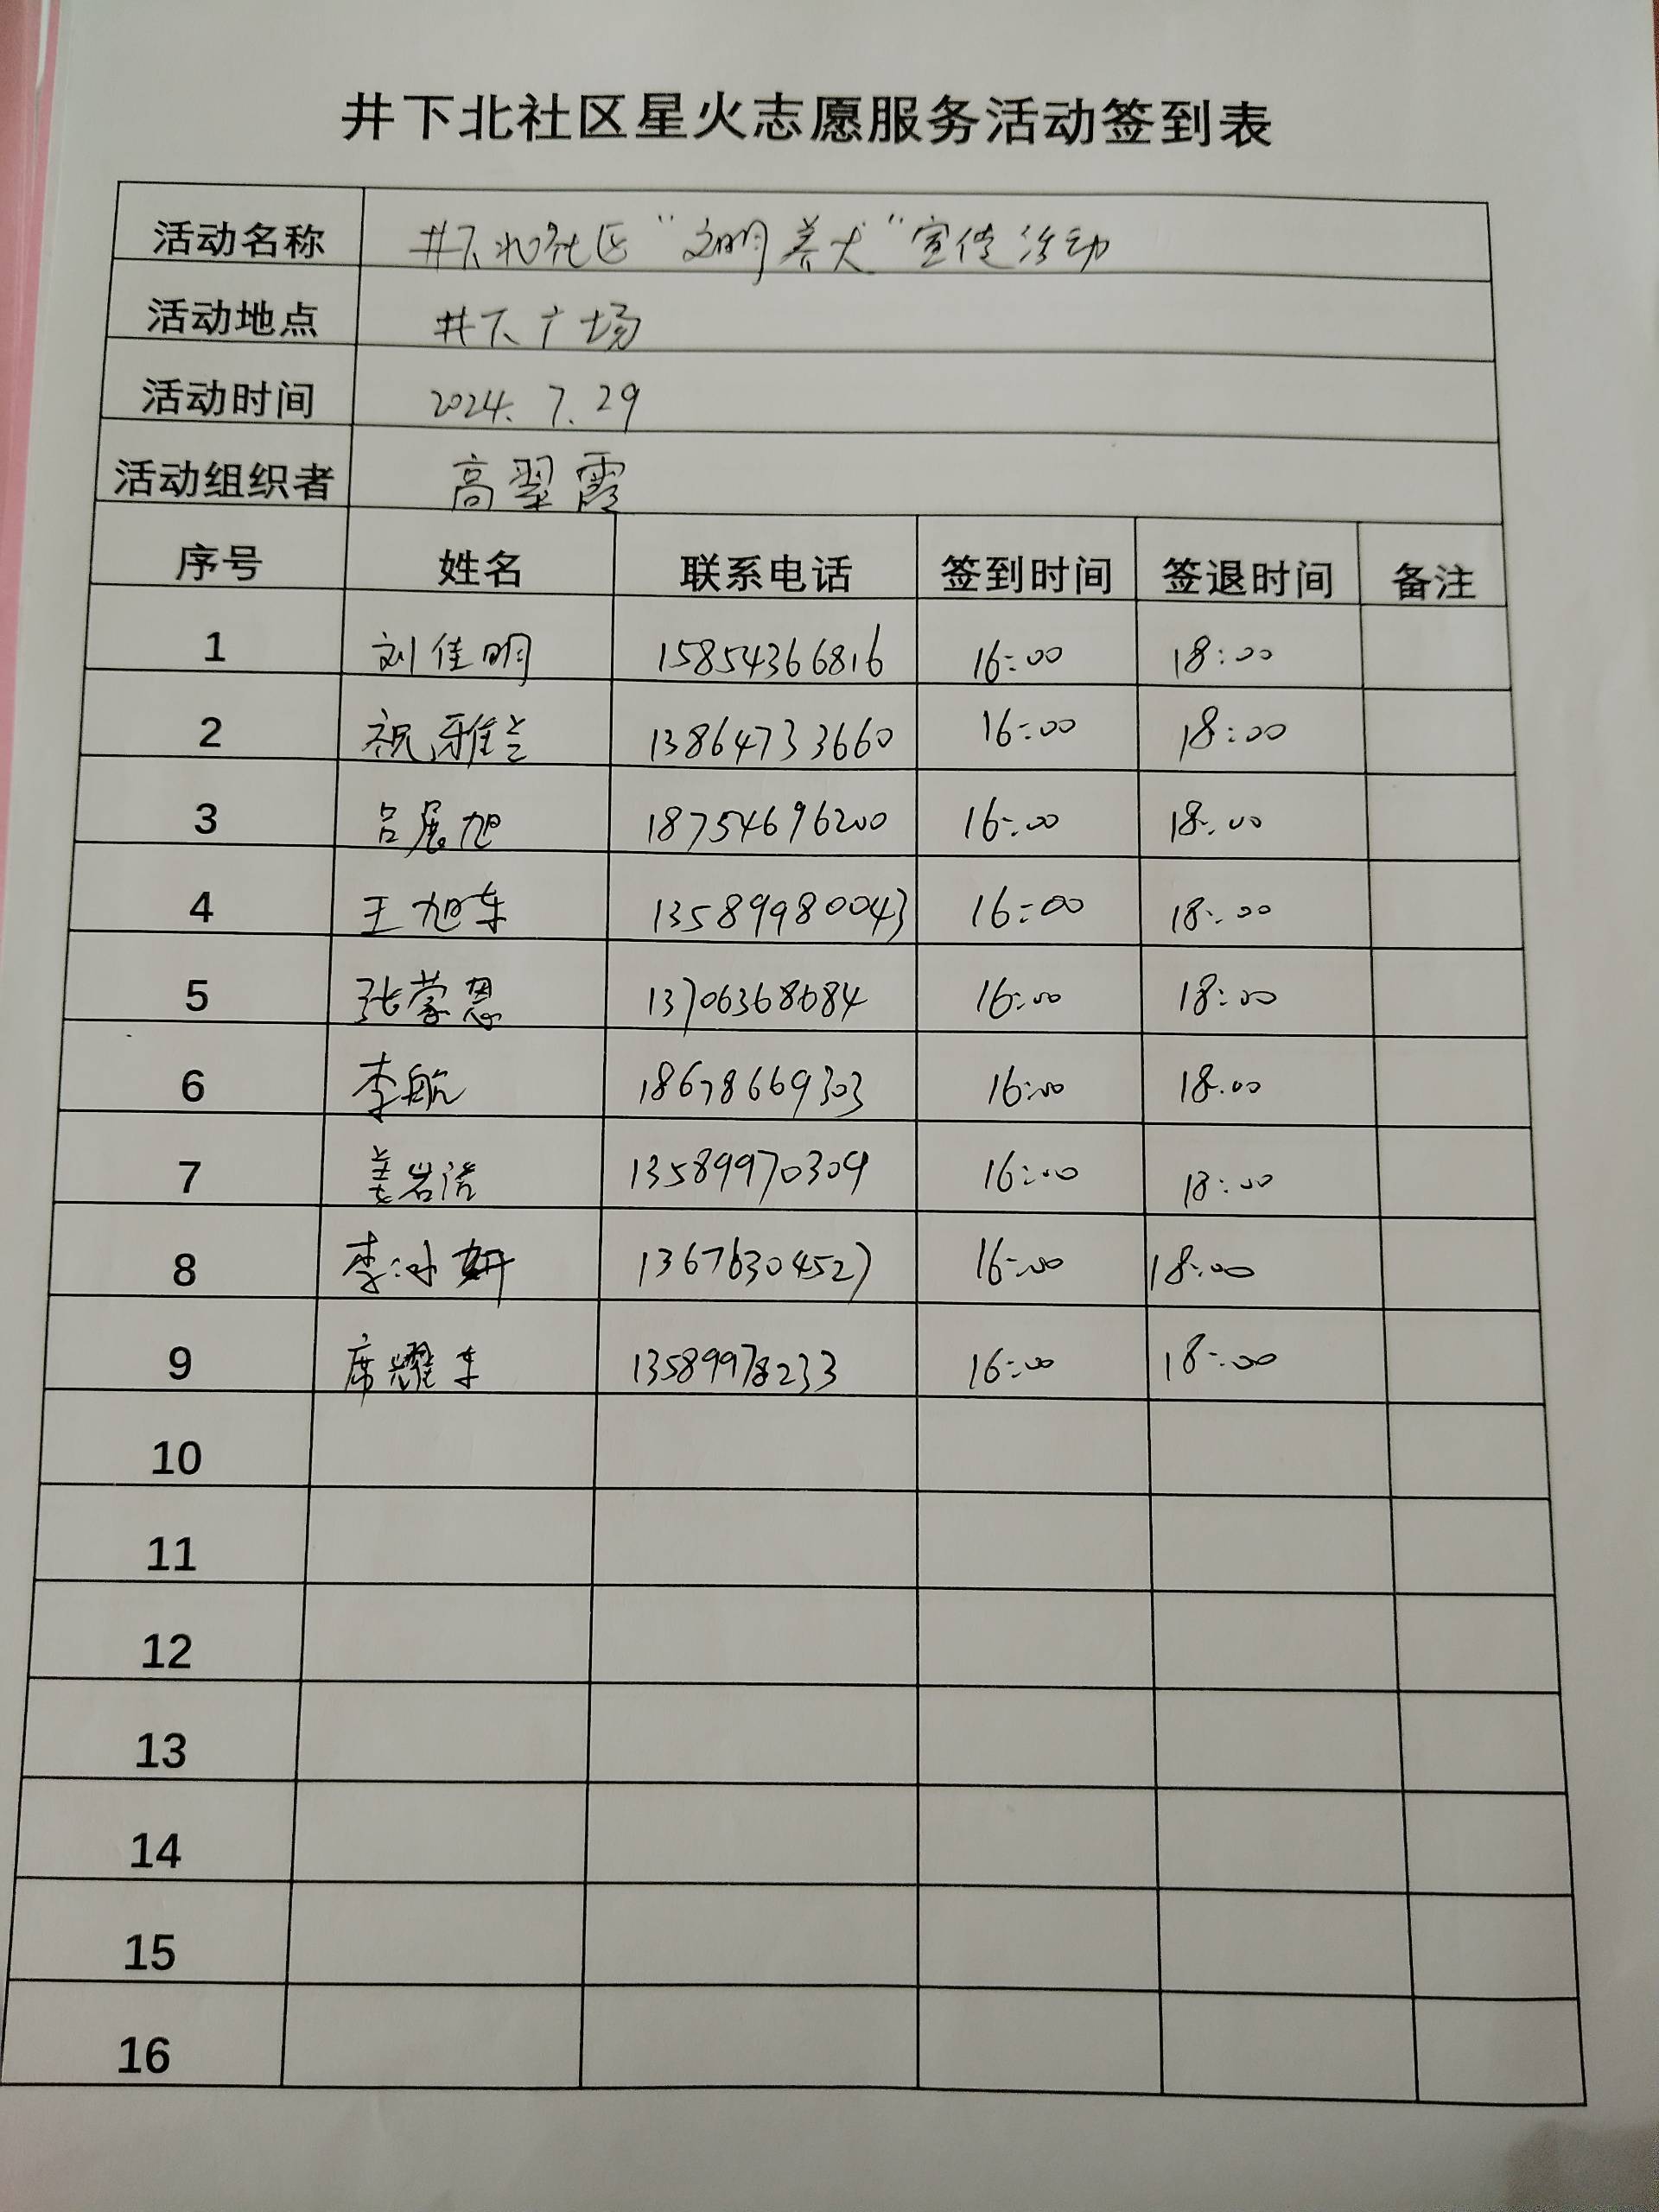 井下北社区星火志愿服务活动签到表
活动名称 井下北社区“文明养犬”宣传活动
活动地点 井下广场
活动时间 2024.7.29
活动组织者 高翠霞
序号 姓名 联系电话 签到时间 签退时间 备注
1 刘佳明 15854366816 16:00 18:00
2 祝雅兰 13864733660 16:00 18:00
3 吕展旭 18754696200 16:00 18:00
4 王旭东 13589980043 16:00 18:00
5 张蒙恩 13706368684 16:00 18:00
6 李航 18678669303 16:00 18:00
7 姜岩浩 13589970309 16:00 18:00
8 李冰妍 13676304527 16:00 18:00
9 席耀东 13589978233 16:00 18:00
10
11
12
13
14
15
16